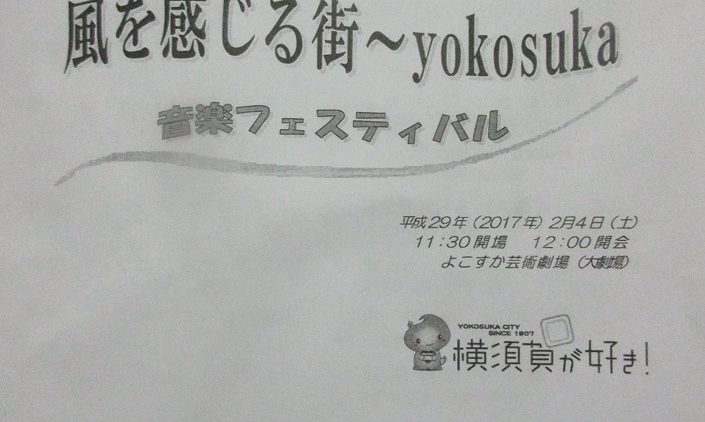 風を感じる街～yokosuka
音楽フェスティバル
平成29年（2017年）2月4日（土）
11:30開場　12:00開会
よこすか芸術劇場（大劇場）
YOKOSUKA CITY
SINCE 1907
横須賀が好き！